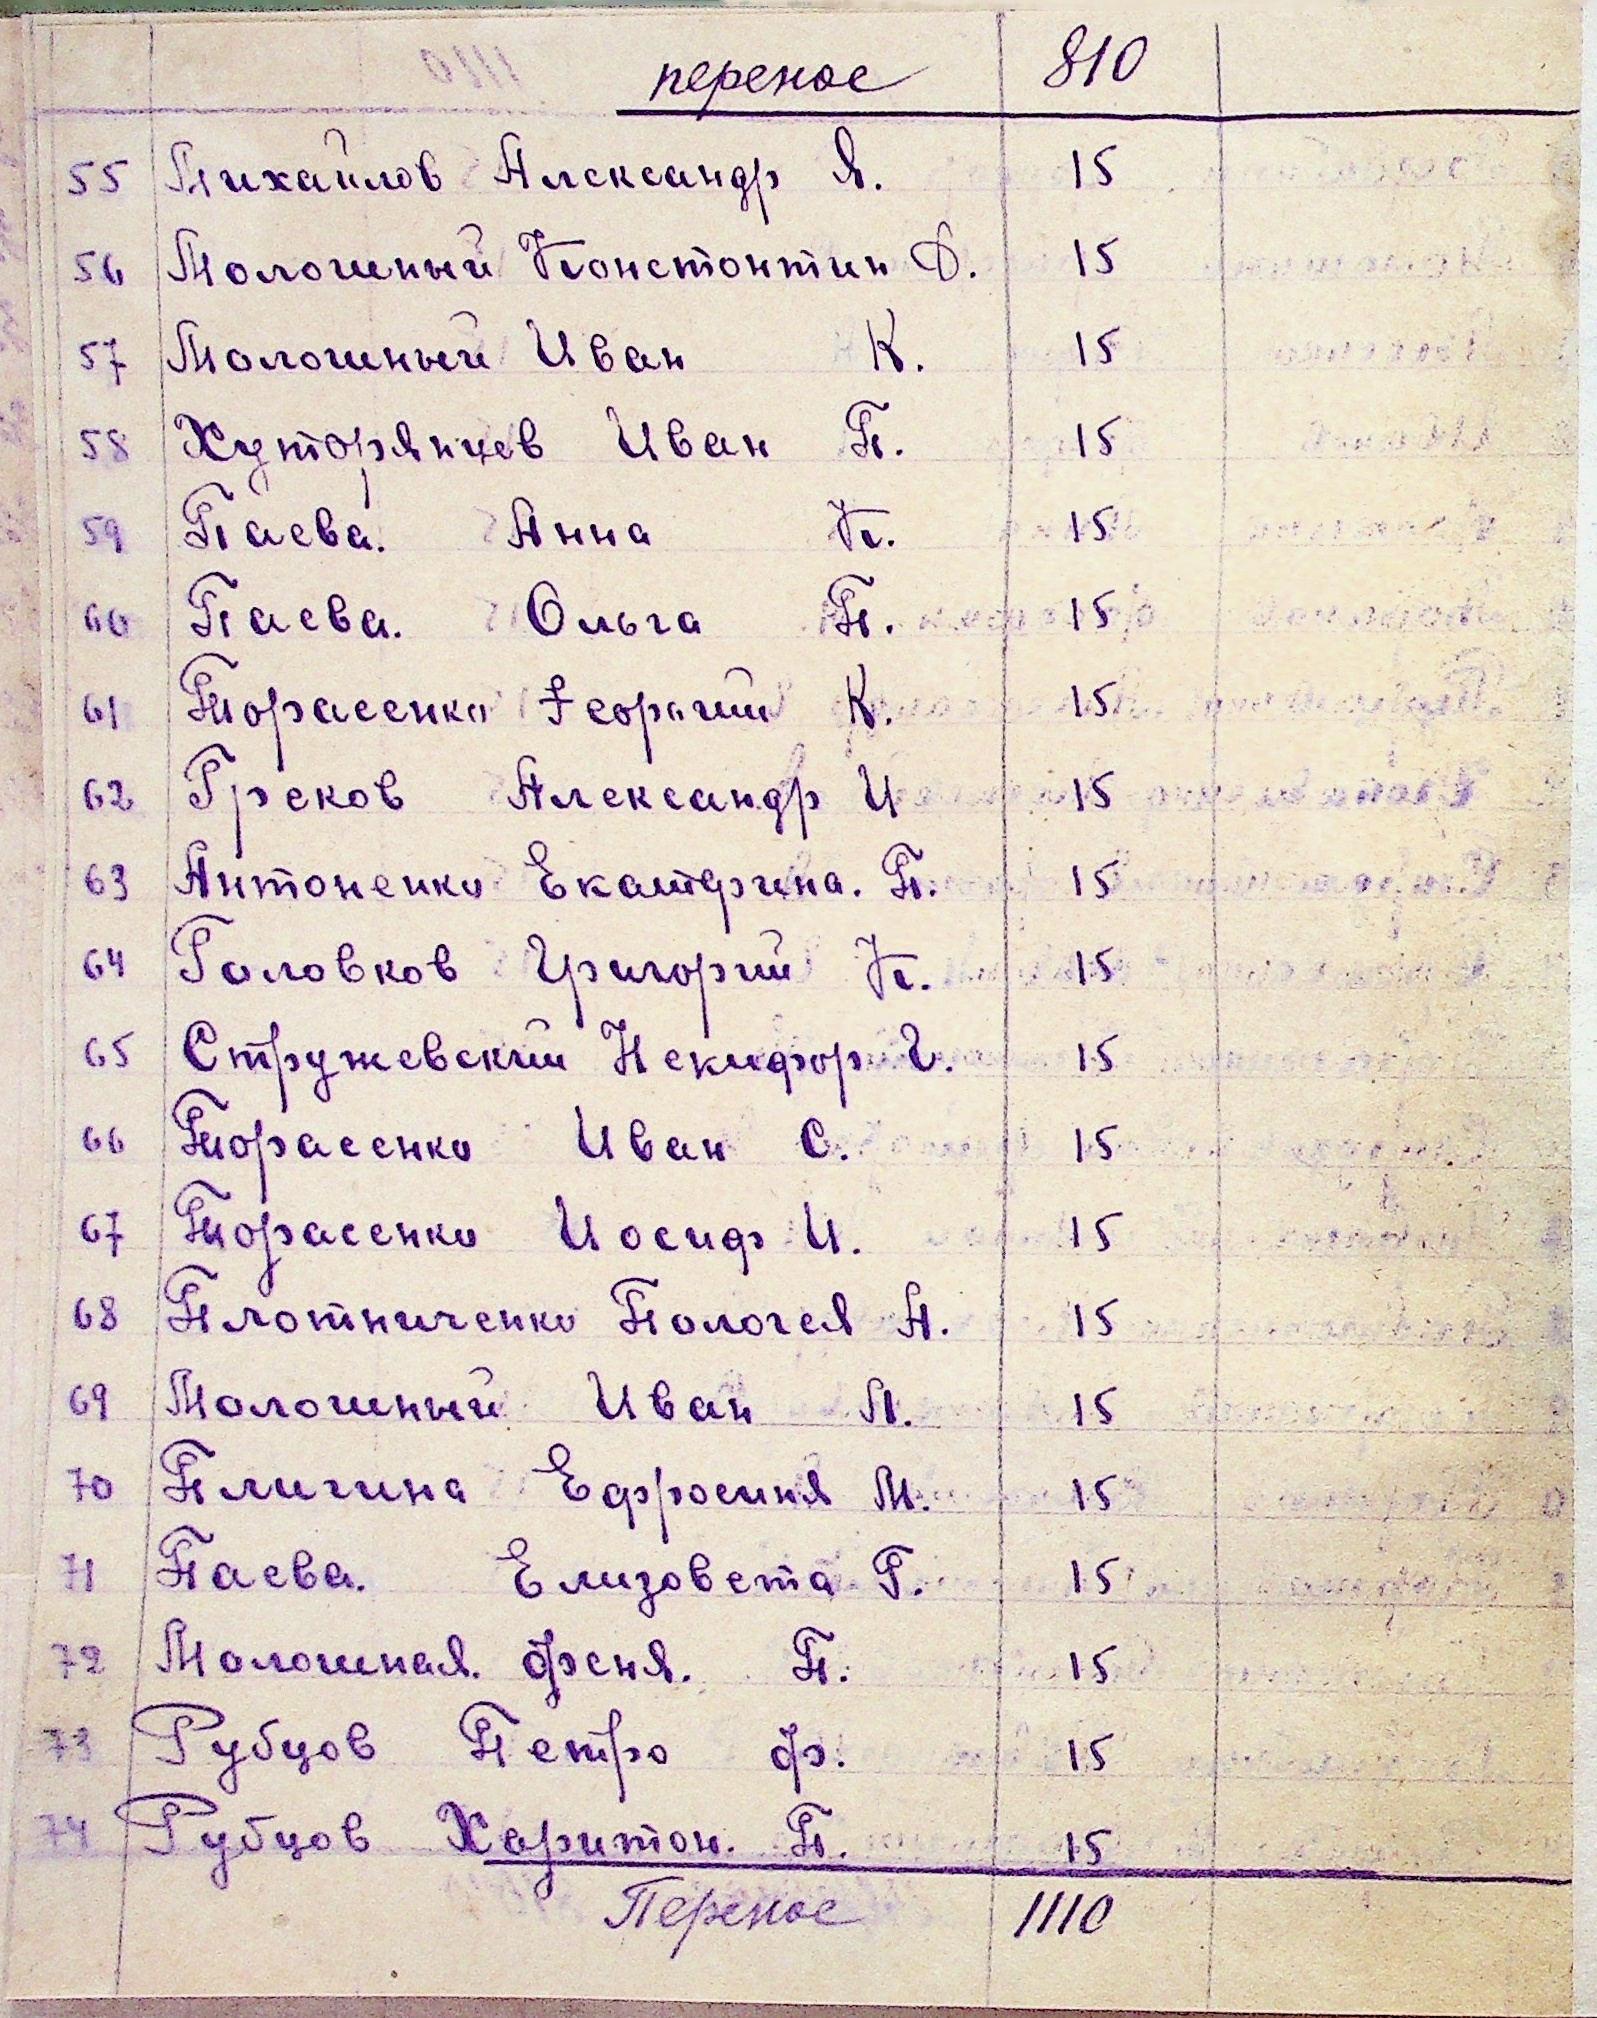 перенос 810
55 Михайлов Александр Я. 15
56 Молошный Констонтин Д. 15
57 Молошный Иван К. 15
58 Хуторянцев Иван П. 15
59 Паева. Анна К. 15
60 Паева. Ольга П. 15
61 Торасенко Георгий К. 15
62 Греков Александр И 15
63 Антоненко Екатерина. П. 15
64 Головков Григорий К. 15
65 Стружевский Некифор Г. 15
66 Торасенко Иван С. 15
67 Торасенко Иосиф И. 15
68 Плотниченко Пологея А. 15
69 Молошный Иван П. 15
70 Плигина Ефросиня М. 15
71 Паева. Елизовета Г. 15
72 Молошная. Феня. П. 15
73 Рубцов Петро Ф. 15
74 Рубцов Харитон. П. 15
Перенос 1110